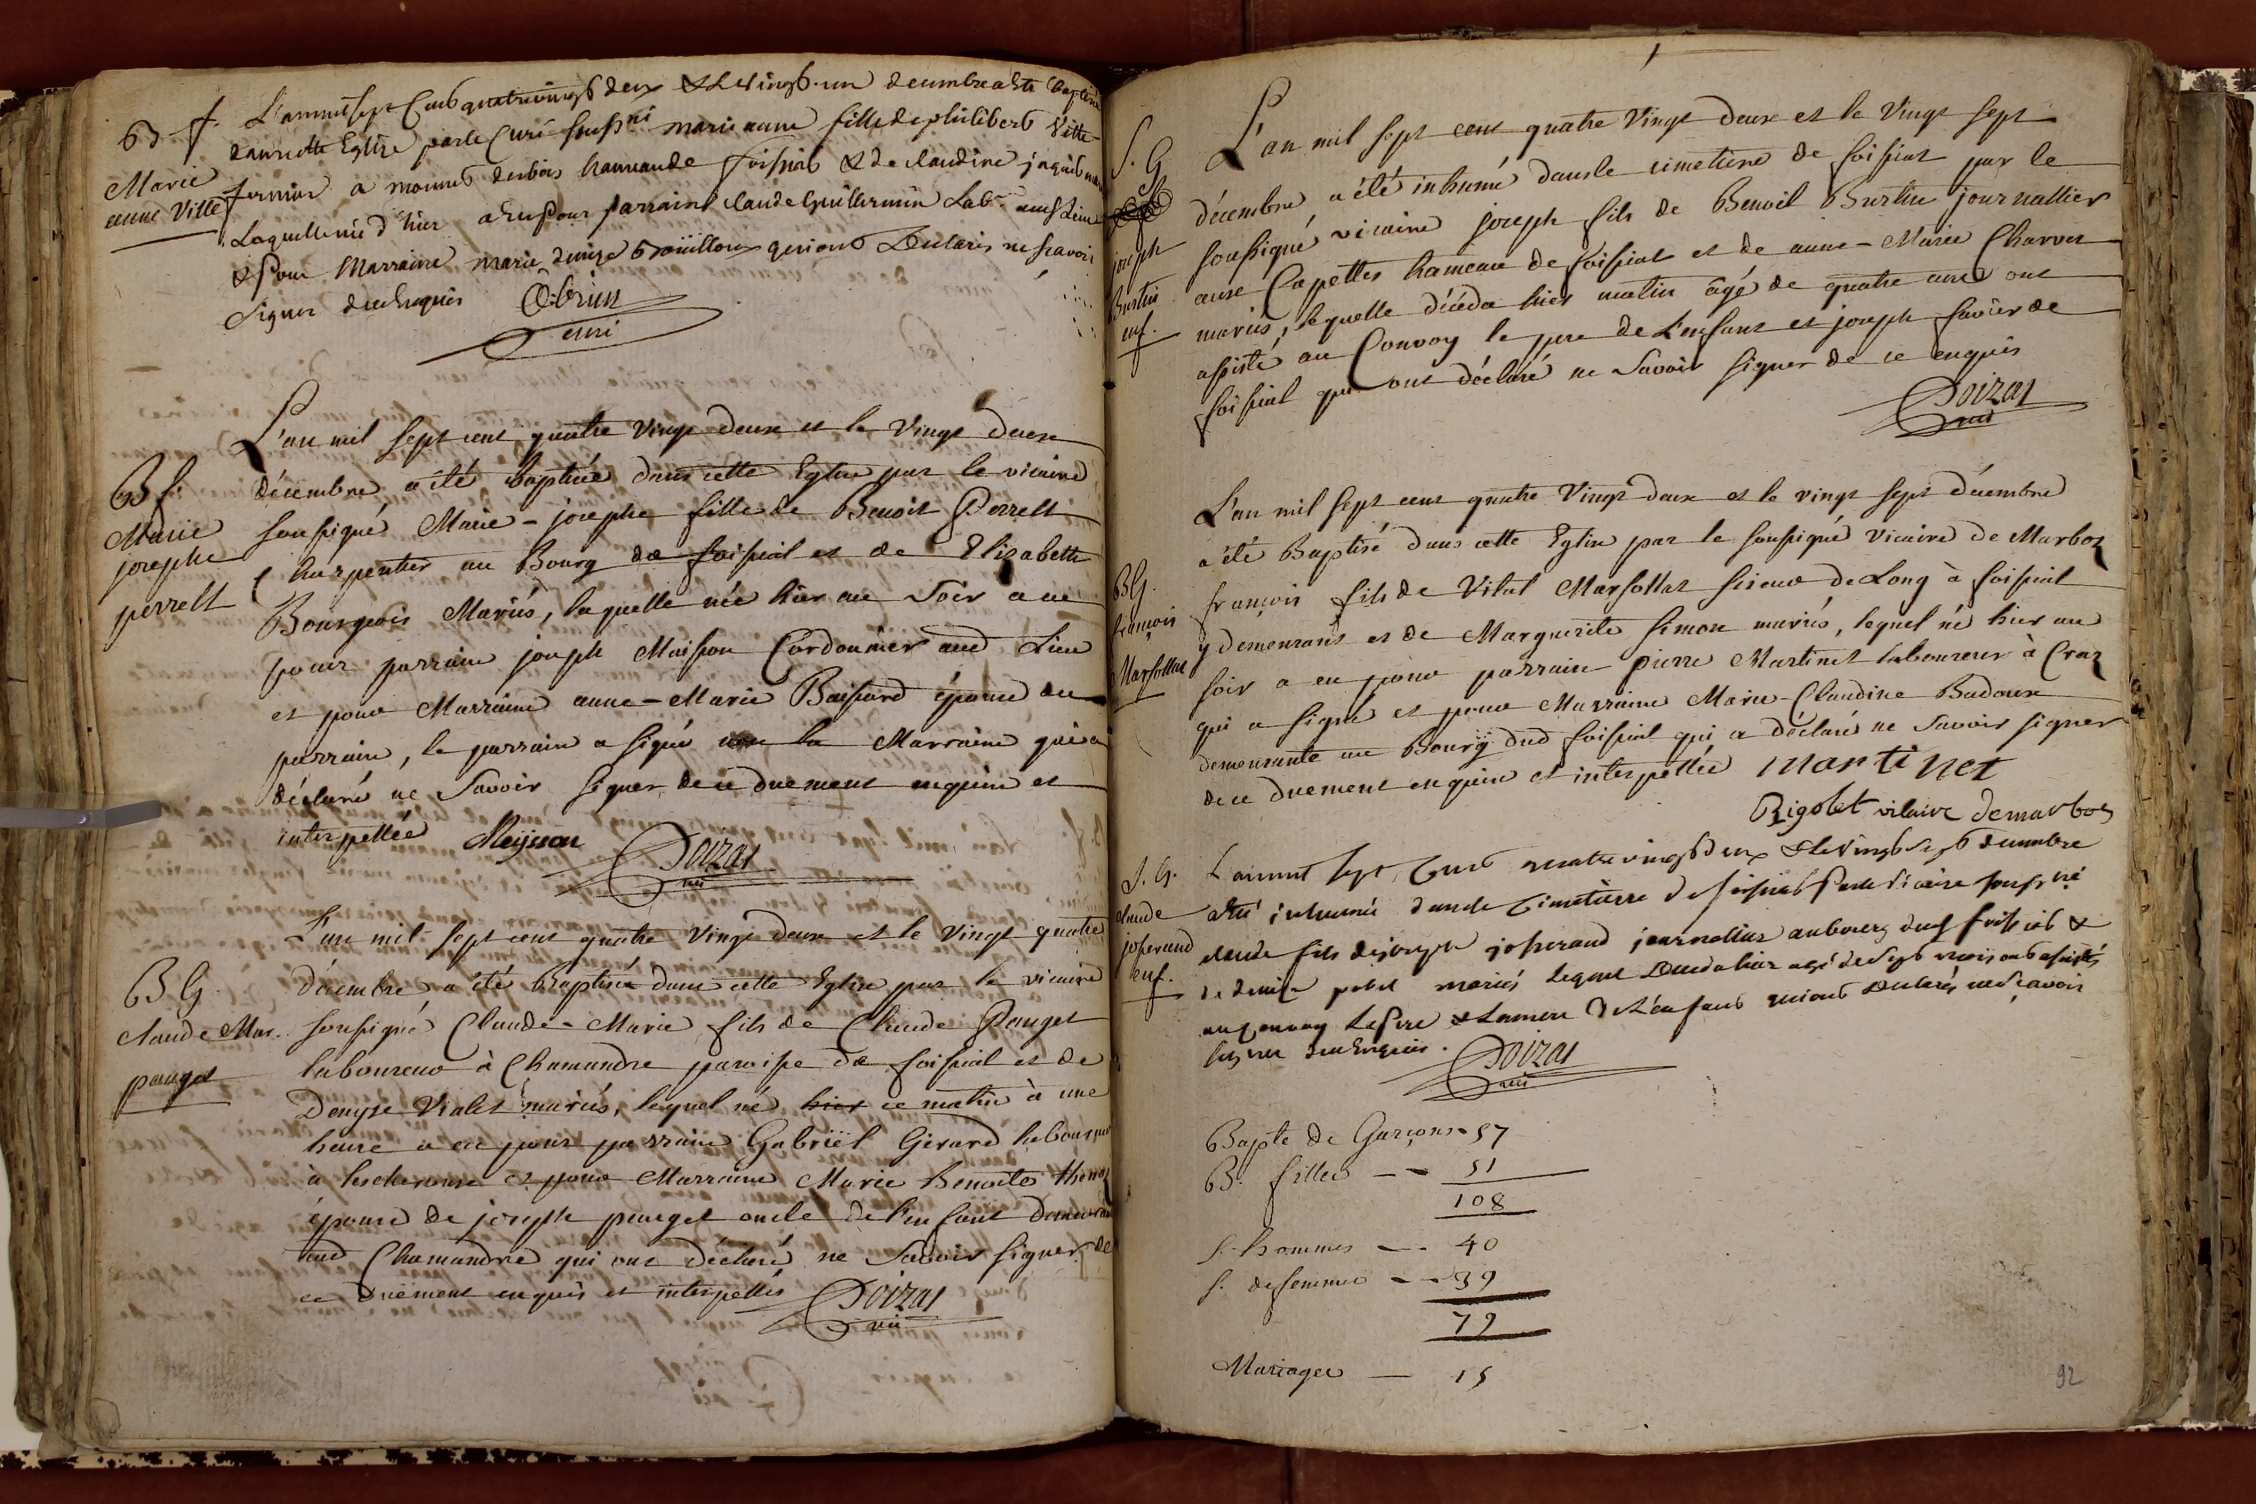 B f.
Marie
anne Ville
L'an mil sept Cent quatrevingt deux & le vingt-un decembre a été baptisée
dans cette Eglise par le Curé soussigné marie anne fille de philibert Ville
fermier a hameau de foissiat & de claudine
Laquelle née d'hier a eu pour parrain claude Guillermin Labr aud Lieu
& pour Marraine marie denise Bouilloux qui ont Declarés ne scavoir
signer de ce Enquis
curé
B f.
Marie
josephe
perrelt
L'an mil sept cent quatre vingt deux et le vingt deux
décembre a été baptisée dans cette Eglise par le vicaire
soussigné Marie-josephe fille de Benoit Perrelt
charpentier au Bourg de foissiat et de Elizabeth
Bourgeois Mariés, laquelle née hier au soir a eu
pour parrain joseph Maisson Cordonnier aud Lieu
et pour Marraine anne-Marie Baissard épouse du
parrain, le parrain a signé non la Marraine qui a
déclaré ne savoir signer de ce duement enquise et
interpellée Meysson Poizat
vic
B G.
Claude Mar.
pauget
L'an mil sept cent quatre vingt deux et le vingt quatre
décembre a été Baptisé dans cette Eglise par le vicaire
soussigné Claude-Marie fils de Claude Pauget
laboureur à Chamandre paroisse de foissiat et de
Denyse Vialet mariés, lequel né hier ce matin à une
heure a eu pour parrain Gabriël Girard laboureur
à lescheroux et pour Marraine Marie Benoite
épouse de joseph pauget oncle de l'enfant demeurant
aud Chamandre qui ont déclaré ne savoir signer de
ce duement enquis et interpellés Poizat
vic
S. G
joseph
Burtin
enf.
L'an mil sept cent quatre vingt deux et le vingt sept
décembre a été inhumé dans le cimetière de foissiat par le
soussigné vicaire joseph fils de Benoit Burtin journallier
aux Capettes hameau de foissiat et de anne-Marie Charvet
mariés, lequelle décéda hier matin âgé de quatre ans ont
assisté au Convoy le pere de L'enfant et joseph favier de
foissiat qui ont déclaré ne Savoir signer de ce enquis
Poizat
vic
B G.
françois
Marsollat
L'an mil sept cent quatre vingt deux et le vingt sept décembre
a été Baptisé dans cette Eglise par le soussigné vicaire de Marboz
françois fils de Vital Marsollat scieur de Long à foissiat
y demeurant et de Marguerite Simon mariés, lequel né hier au
soir a eu pour parrain pierre Martinet laboureur à Craz
qui a signé et pour Marraine Marie-Claudine Badoux
demeurante au Bourg dud foissiat qui a déclaré ne Savoir signer
de ce duement enquise et interpellée Martinet
Rigolet vicaire de marboz
S. G.
claude
josserand
enf.
L'an mil sept Cent quatre vingt deux & le vingt sept decembre
a été inhumé dans le Cimetierre de foissiat par le Vicaire soussigné
claude fils de joseph josserand journalier au bourg dud foissiat &
de denise petit mariés Lequel Deceda hier agé de sept mois ont assistés
au Convoy Le pere & La mere De L'enfant qui ont Declarés ne Scavoir
signer de ce Enquis. Poizat
vic
Bapte de Garçons 57
B. filles — 51
108
S. hommes — 40
S. de femmes — 39
79
Mariages — 15
92